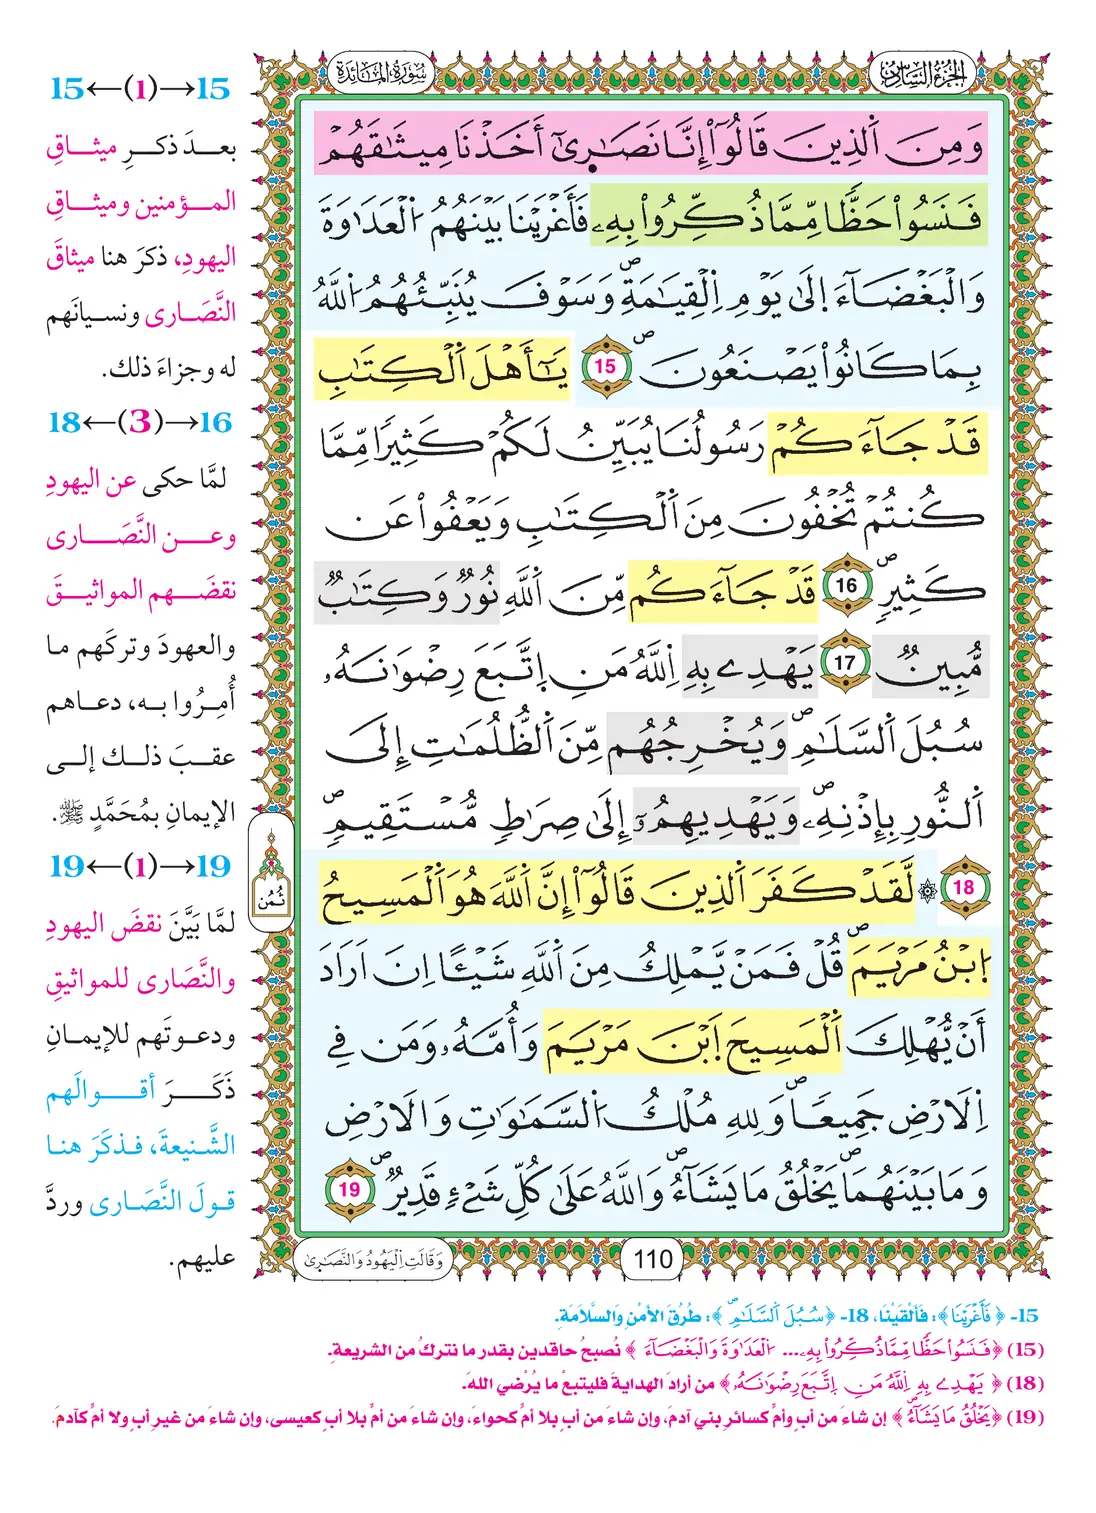 الجُزْءُ السَّادِسُ
سُورَةُ المَائِدَةِ
وَمِنَ اَ۬لذِينَ قَالُوٓاْ إِنَّا نَصَٰر۪يٰٓ أَخَذْنَا مِيثَٰقَهُمْ
فَنَسُواْ حَظّاٗ مِّمَّا ذُكِّرُواْ بِهِۦ فَأَغْرَيْنَا بَيْنَهُمُ اُ۬لْعَدَاوَةَ
وَالْبَغْضَآءَ اِلَىٰ يَوْمِ اِ۬لْقِيَٰمَةِۖ وَسَوْفَ يُنَبِّئُهُمُ اُ۬للَّهُ
بِمَا كَانُواْ يَصْنَعُونَۖ 15 يَٰٓأَهْلَ اَ۬لْكِتَٰبِ
قَدْ جَآءَكُمْ رَسُولُنَا يُبَيِّنُ لَكُمْ كَثِيراٗ مِّمَّا
كُنتُمْ تُخْفُونَ مِنَ اَ۬لْكِتَٰبِ وَيَعْفُواْ عَن
كَثِيرٖۖ 16 قَدْ جَآءَكُم مِّنَ اَ۬للَّهِ نُورٞ وَكِتَٰبٞ
مُّبِينٞ 17 يَهْدِے بِهِ اِ۬للَّهُ مَنِ اِ۪تَّبَعَ رِضْوَٰنَهُۥ
سُبُلَ اَ۬لسَّلَٰمِۖ وَيُخْرِجُهُم مِّنَ اَ۬لظُّلُمَٰتِ إِلَى
اَ۬لنُّورِ بِإِذْنِهِۦۖ وَيَهْدِيهِمُۥٓ إِلَىٰ صِرَٰطٖ مُّسْتَقِيمٖۖ
18 ۞ لَّقَدْ كَفَرَ اَ۬لذِينَ قَالُوٓاْ إِنَّ اَ۬للَّهَ هُوَ اَ۬لْمَسِيحُ
اُ۪بْنُ مَرْيَمَۖ قُلْ فَمَنْ يَّمْلِكُ مِنَ اَ۬للَّهِ شَيْـٔاً اِنَ اَرَادَ
أَنْ يُّهْلِكَ اَ۬لْمَسِيحَ اَ۪بْنَ مَرْيَمَ وَأُمَّهُۥ وَمَن فِے
اِ۬لَارْضِ جَمِيعاٗۖ وَلِلهِ مُلْكُ اُ۬لسَّمَٰوَٰتِ وَالَارْضِ
وَمَا بَيْنَهُمَاۖ يَخْلُقُ مَا يَشَآءُۖ وَاللَّهُ عَلَىٰ كُلِّ شَےْءٖ قَدِيرٞۖ 19
15←(1)→15
بعدَ ذكرِ ميثاقِ
المؤمنين وميثاقِ
اليهودِ، ذكرَ هنا ميثاقَ
النَّصَارى ونسيانَهم
له وجزاءَ ذلك.
18←(3)→16
لمَّا حكى عن اليهودِ
وعن النَّصَارى
نقضَهم المواثيقَ
والعهودَ وتركَهم ما
أُمِرُوا به، دعاهم
عقبَ ذلك إلى
الإيمانِ بمُحَمَّدٍ ﷺ.
19←(1)→19
لمَّا بَيَّنَ نقضَ اليهودِ
والنَّصَارى للمواثيقِ
ودعوتَهم للإيمانِ
ذَكَرَ أقوالَهم
الشَّنيعةَ، فذكرَ هنا
قولَ النَّصَارى وردَّ
عليهم.
ثُمُن
110
وَقَالَتِ اِ۬ليَهُودُ وَالنَّصَٰر۪يٰ
15- ﴿فَأَغْرَيْنَا﴾: فَأَلْقَيْنَا، 18- ﴿سُبُلَ اَ۬لسَّلَٰمِۖ﴾: طُرُقَ الأَمْنِ وَالسَّلَامَةِ.
(15) ﴿فَنَسُواْ حَظّاٗ مِّمَّا ذُكِّرُواْ بِهِۦ... اَ۬لْعَدَاوَةَ وَالْبَغْضَآءَ﴾ نُصبحُ حاقدين بقدر ما نتركُ من الشريعةِ.
(18) ﴿يَهْدِے بِهِ اِ۬للَّهُ مَنِ اِ۪تَّبَعَ رِضْوَٰنَهُۥ﴾ من أرادَ الهدايةَ فليتبعْ ما يُرْضي اللهَ.
(19) ﴿يَخْلُقُ مَا يَشَآءُۖ﴾ إن شاءَ من أبٍ وأمٍّ كسائرِ بني آدمَ، وإن شاءَ من أبٍ بلا أمٍّ كحواءَ، وإن شاءَ من أمٍّ بلا أبٍ كعيسى، وإن شاءَ من غيرِ أبٍ ولا أمٍّ كآدمَ.